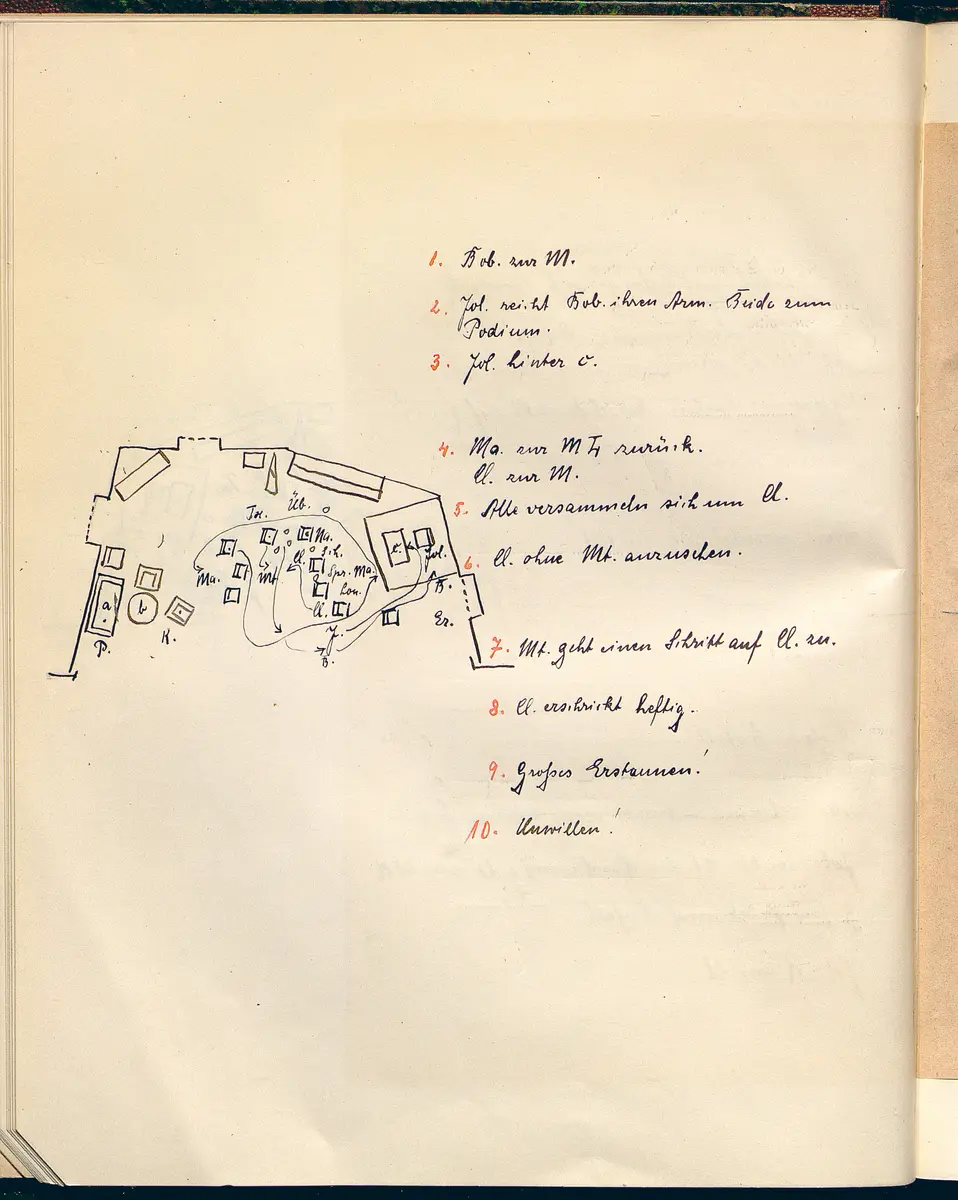 1. Bob. zur M.
2. Jol. reicht Bob. ihren Arm. Beide zum
Podium.
3. Jol. hinter c.
4. Ma. zur M zurück.
Cl. zur M.
5. Alle versammeln sich um Cl.
6. Cl. ohne Mt. anzusehen.
7. Mt. geht einen Schritt auf Cl. zu.
8. Cl. erschrickt heftig.
9. Großes Erstaunen!
10. Unwillen!
Üb.
Na.
Cl.
Jol.
Ma.
Mt
Spr. Ma.
Lou.
B.
Cl.
Er.
J.
a
b
c
P.
K.
B.